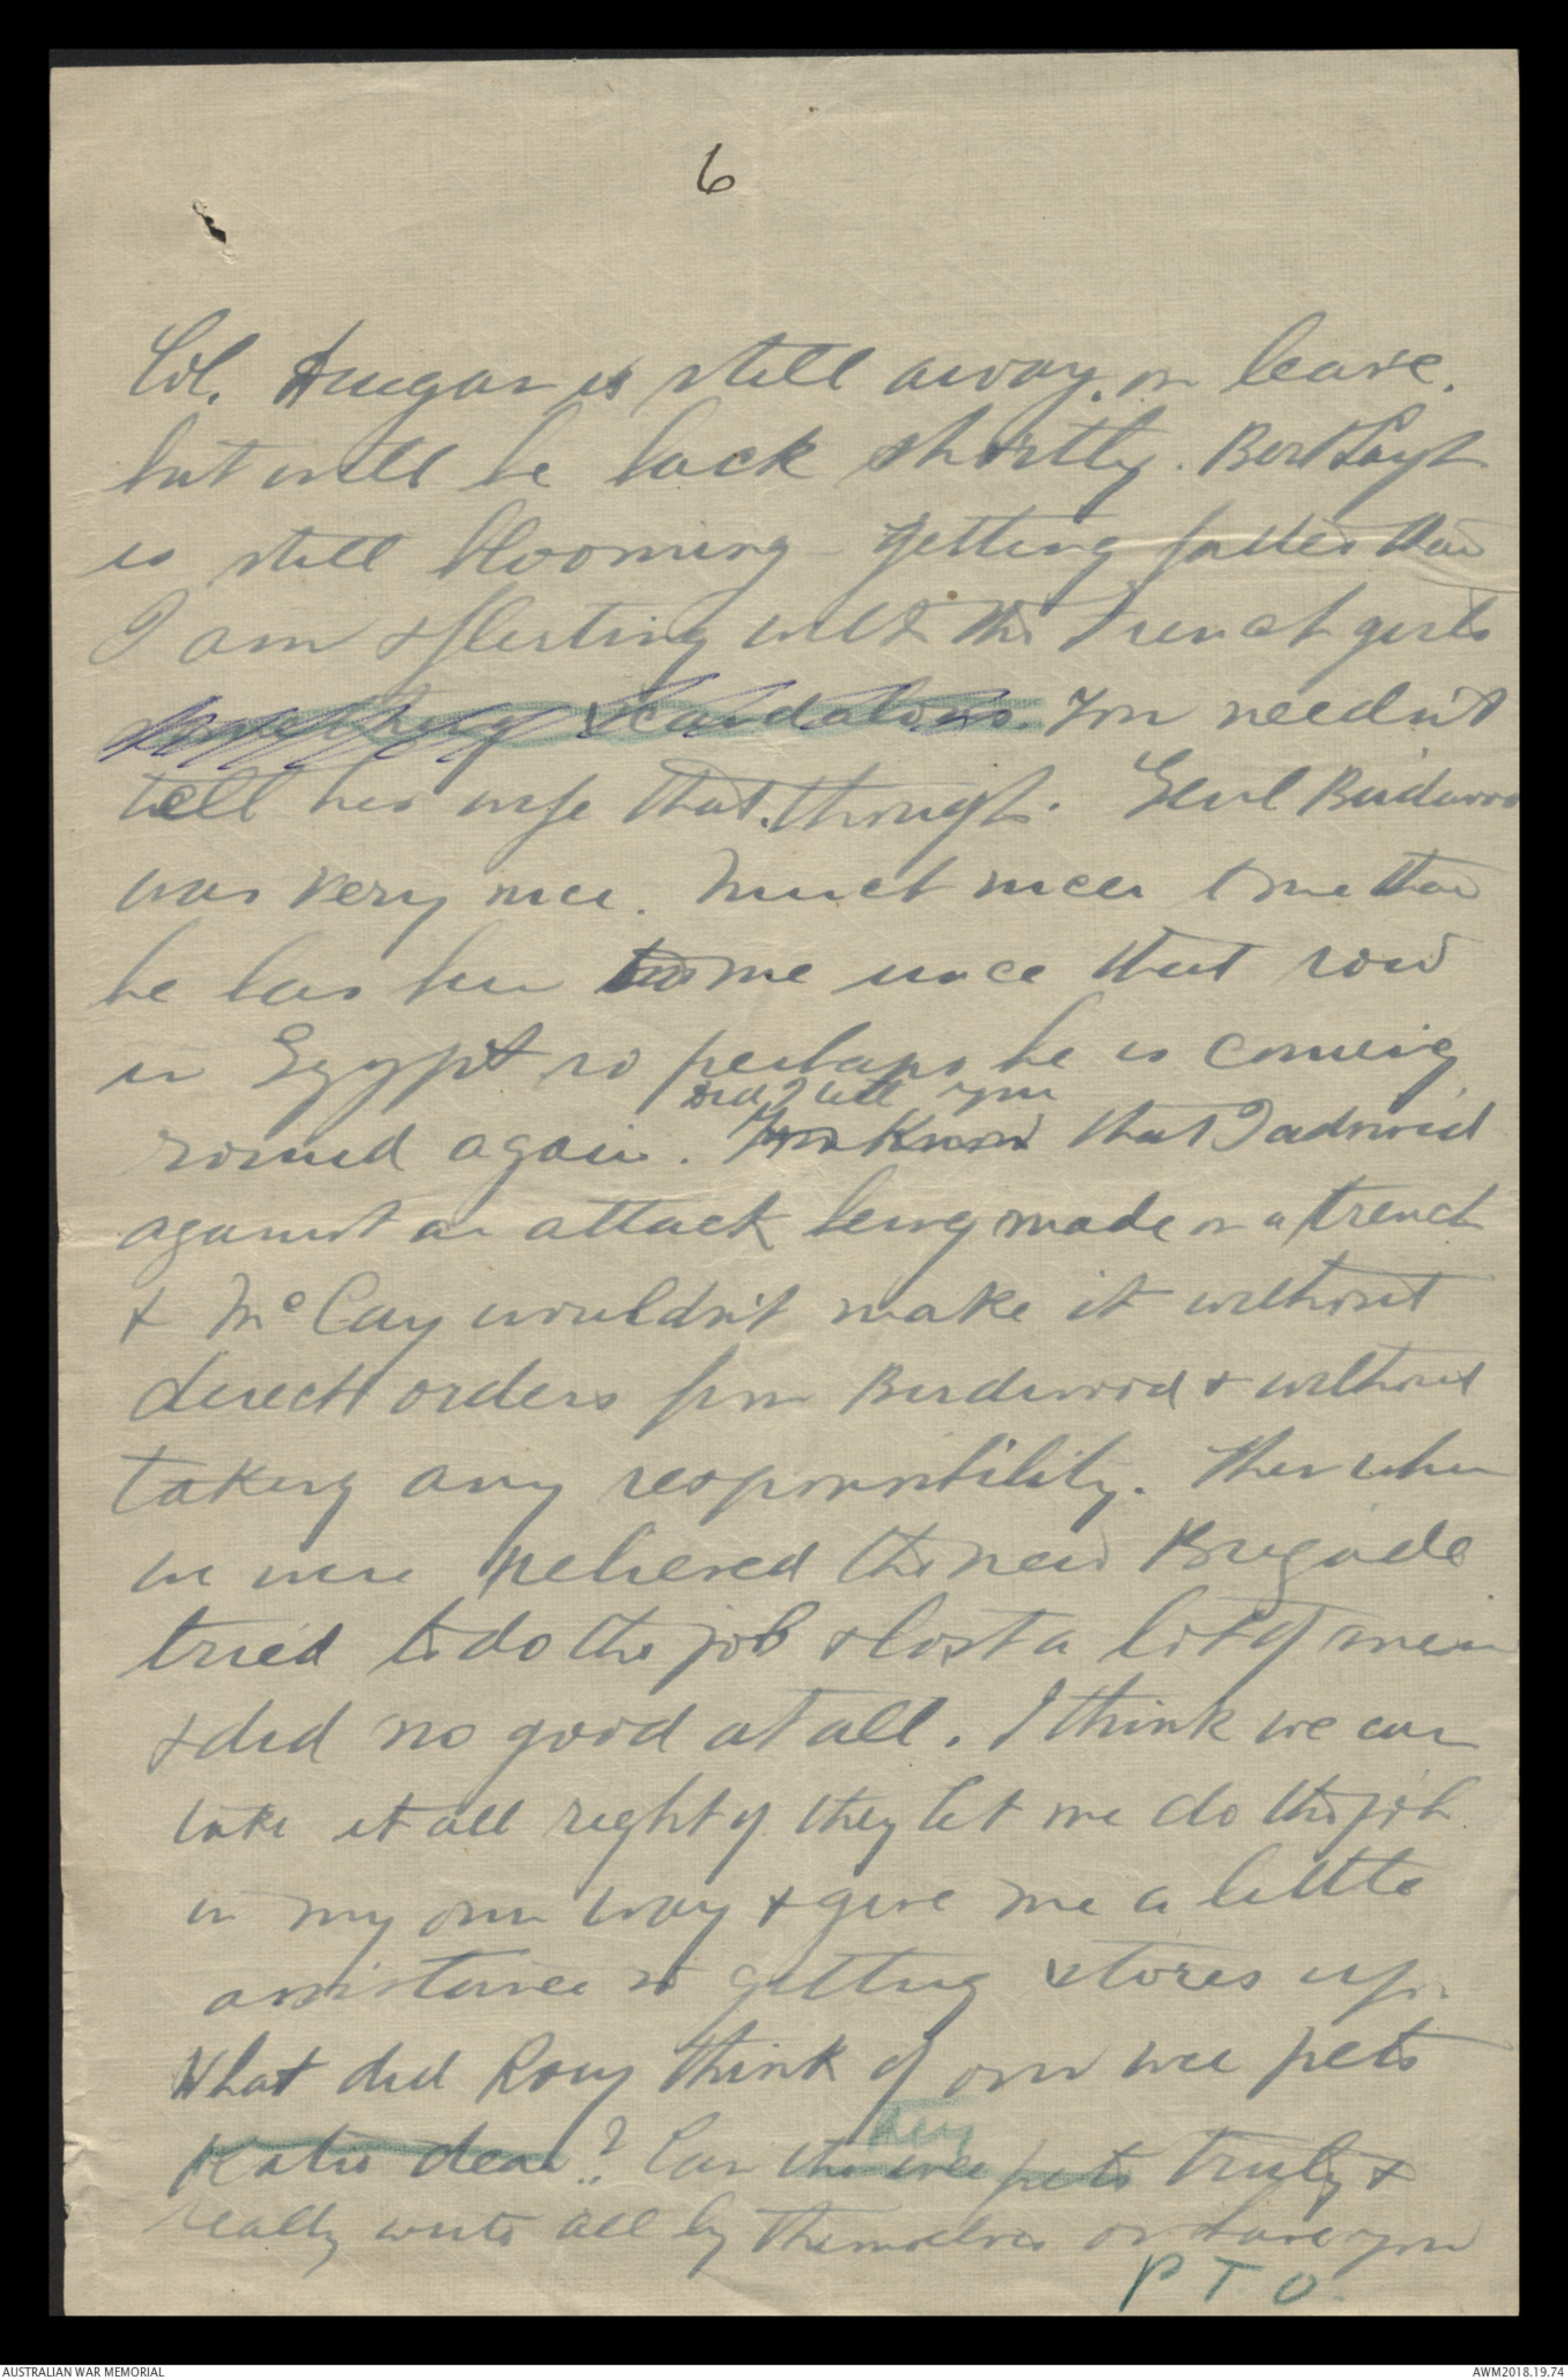 6
Col. is still away, on leave,
but will be back shortly. Bert Layh
is still blooming - getting fatter than
I am & flirting with the French girls
something scandalous. You needn't
tell his wife that, though. Genl Birdwood
was very nice. Much nicer to me than
he has been to me since that row
in Egypt so perhaps he is coming
did I tell you
round again. You know that I advised
against an attack being made on a trench
& McCay wouldn't make it without
direct orders from Birdwood & without
taking any responsibility. Then when
we were relieved the new Brigade
tried to do the job & lost a lot of men
& did no good at all. I think we can
take it all right if they let me do the job
in my own way & give me a little
assistance in getting stores up.
What did Roy think of our wee pets
they
Katie dear? Can the wee pets truly &
really write all by themselves or have you
P T O.
AUSTRALIAN WAR MEMORIAL
AWM2018.19.74